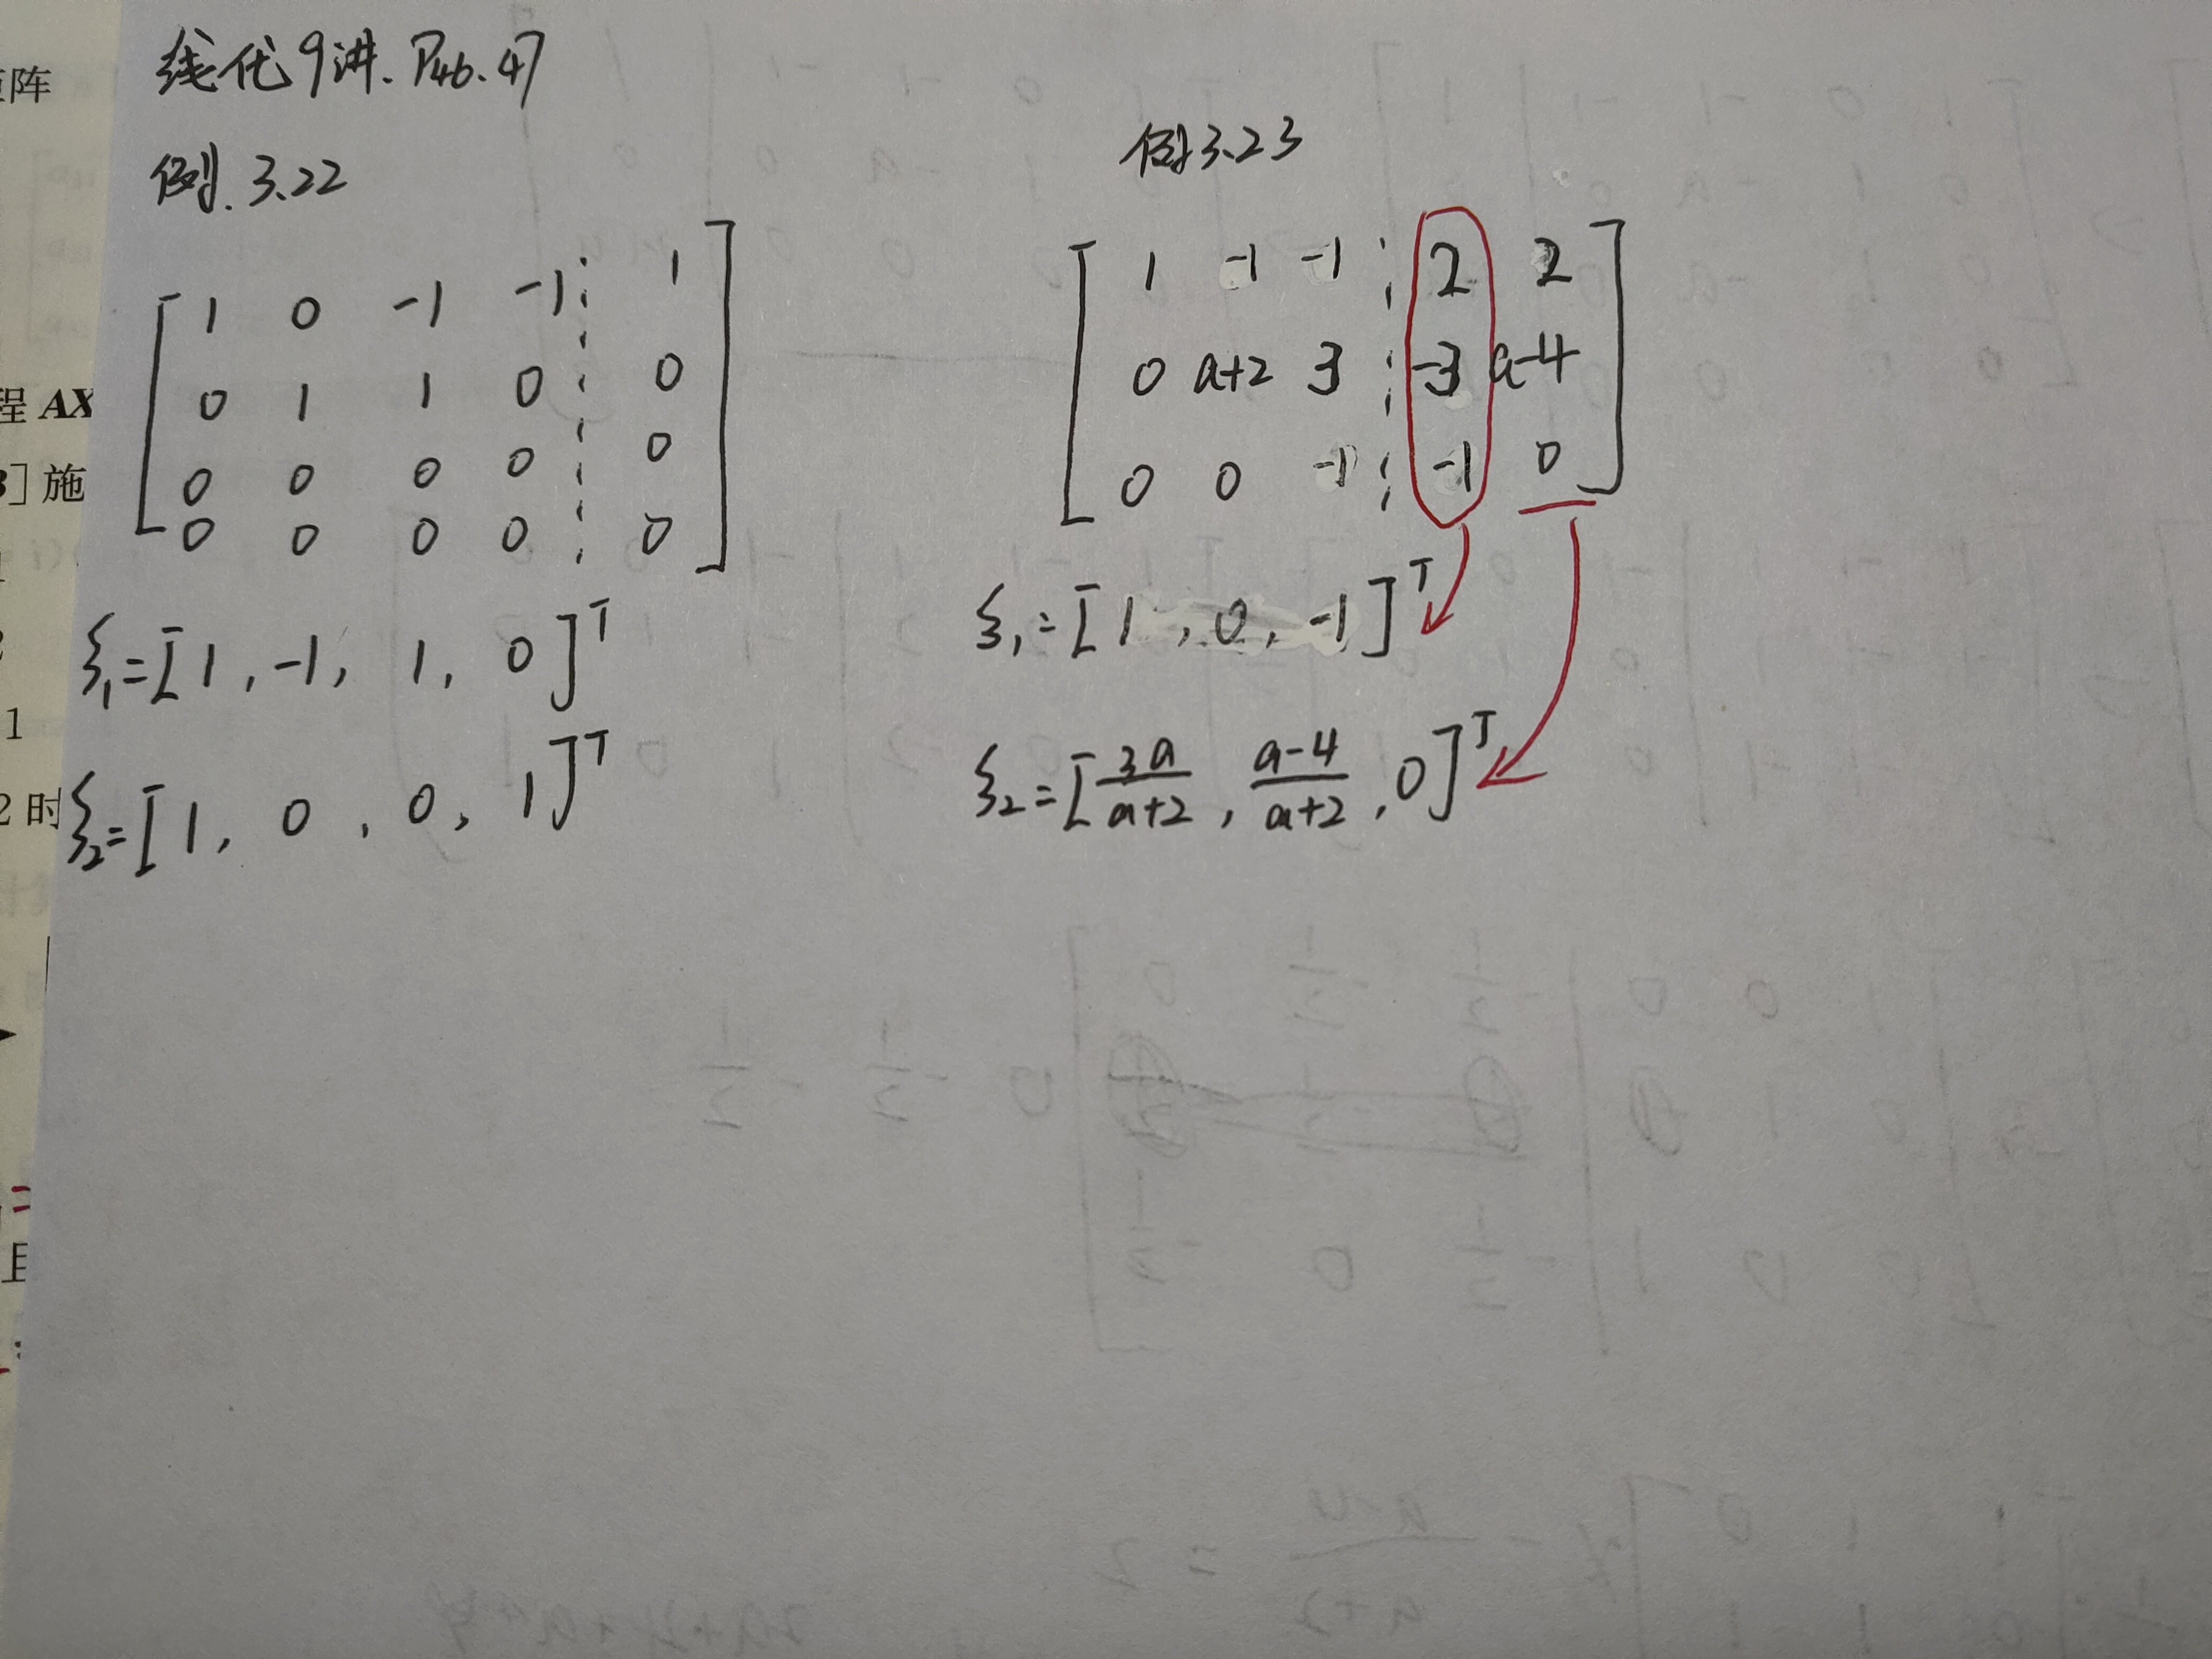 线代9讲. P46. 47
例. 3.22
1 0 -1 -1 1
0 1 1 0 0
0 0 0 0 0
0 0 0 0 0
ξ₁=[1, -1, 1, 0]ᵀ
ξ₂=[1, 0, 0, 1]ᵀ
例3.23
1 -1 -1 2 2
0 a+2 3 -3 a-4
0 0 -1 -1 0
ξ₁=[1, 0, -1]ᵀ
ξ₂=[3a/a+2, a-4/a+2, 0]ᵀ
阵
程 AX
] 施
1
2 时
且